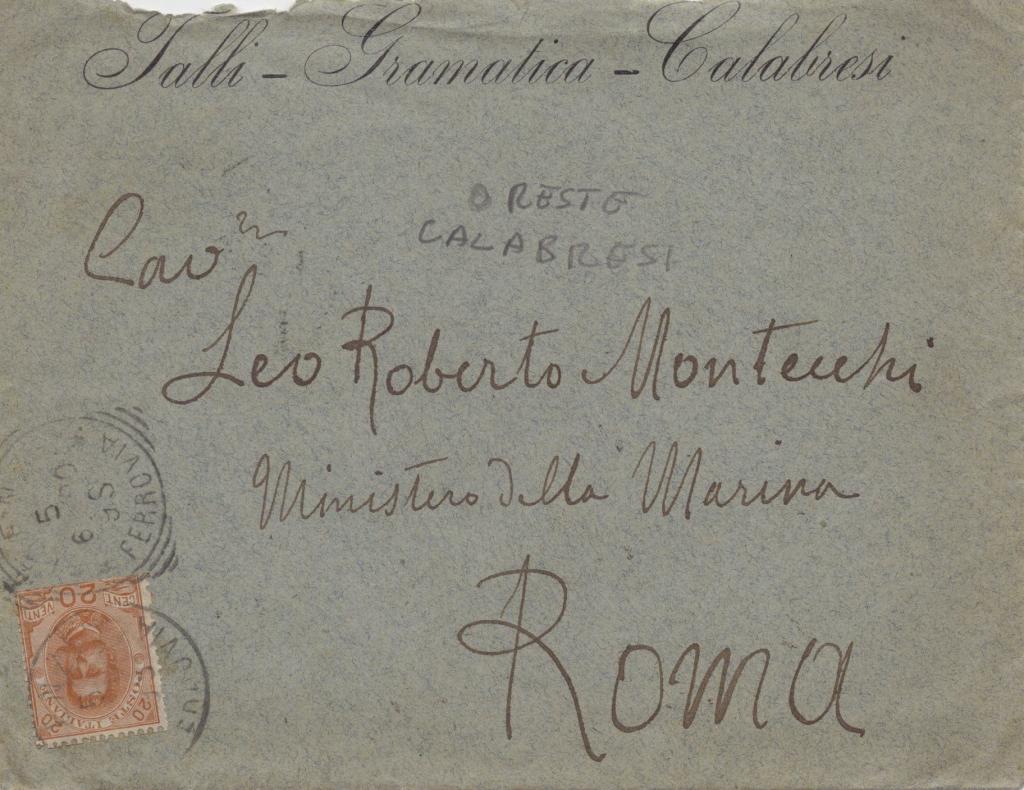 Talli – Gramatica – Calabresi
ORESTE
CALABRESI
Cav
Leo Roberto Montecchi
Ministero della Marina
Roma
FERROVIA
20
VENTI CENT.
POSTE ITALIANE
20 20